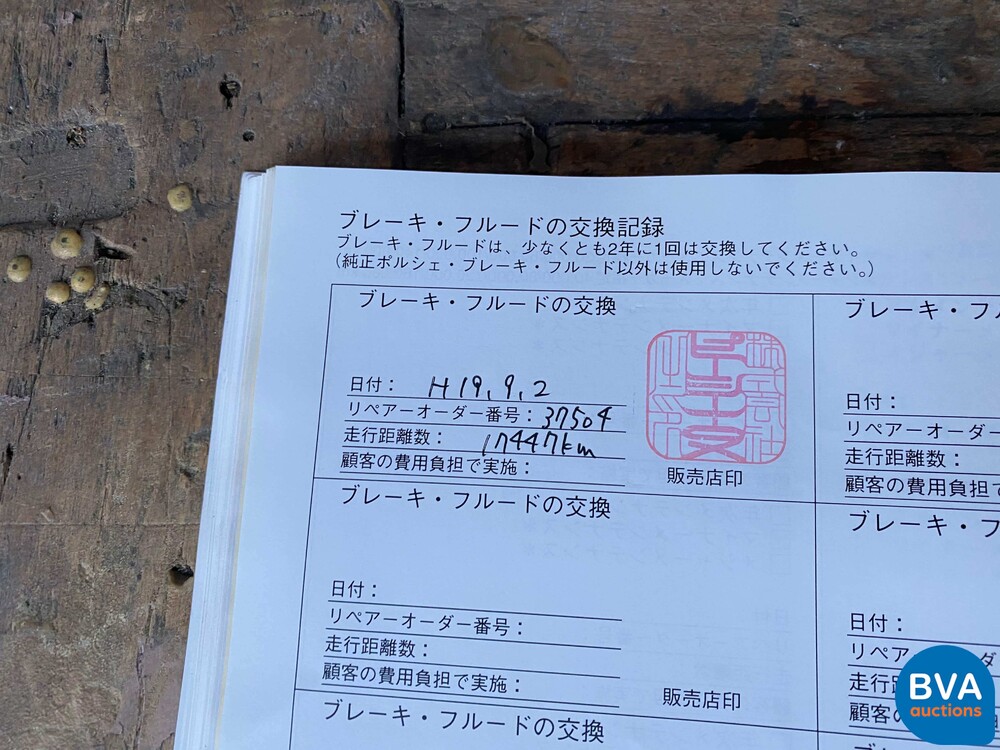 ブレーキ・フルードの交換記録
ブレーキ・フルードは、少なくとも2年に1回は交換してください。
（純正ポルシェ・ブレーキ・フルード以外は使用しないでください。）
ブレーキ・フルードの交換
日付： H19.9.2
リペアーオーダー番号：37504
走行距離数： 17447km
顧客の費用負担で実施：
販売店印
ブレーキ・フ
日付：
リペアーオーダー
走行距離数：
顧客の費用負担で
ブレーキ・フルードの交換
日付：
リペアーオーダー番号：
走行距離数：
顧客の費用負担で実施：
販売店印
ブレーキ・フ
日付：
リペア
走行
顧客
ブレーキ・フルードの交換
BVA
auctions